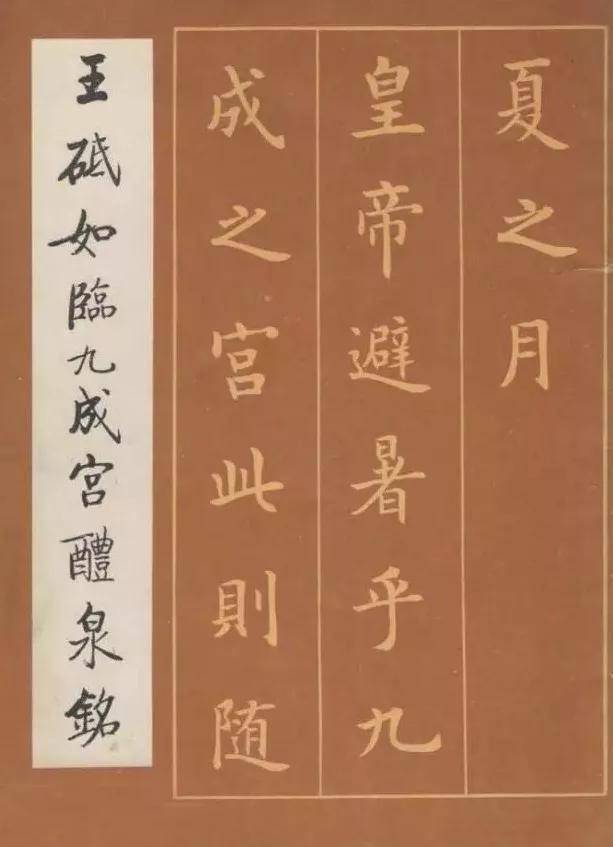 夏之月
皇帝避暑乎九
成之宮此則随
王砥如臨九成宮醴泉銘